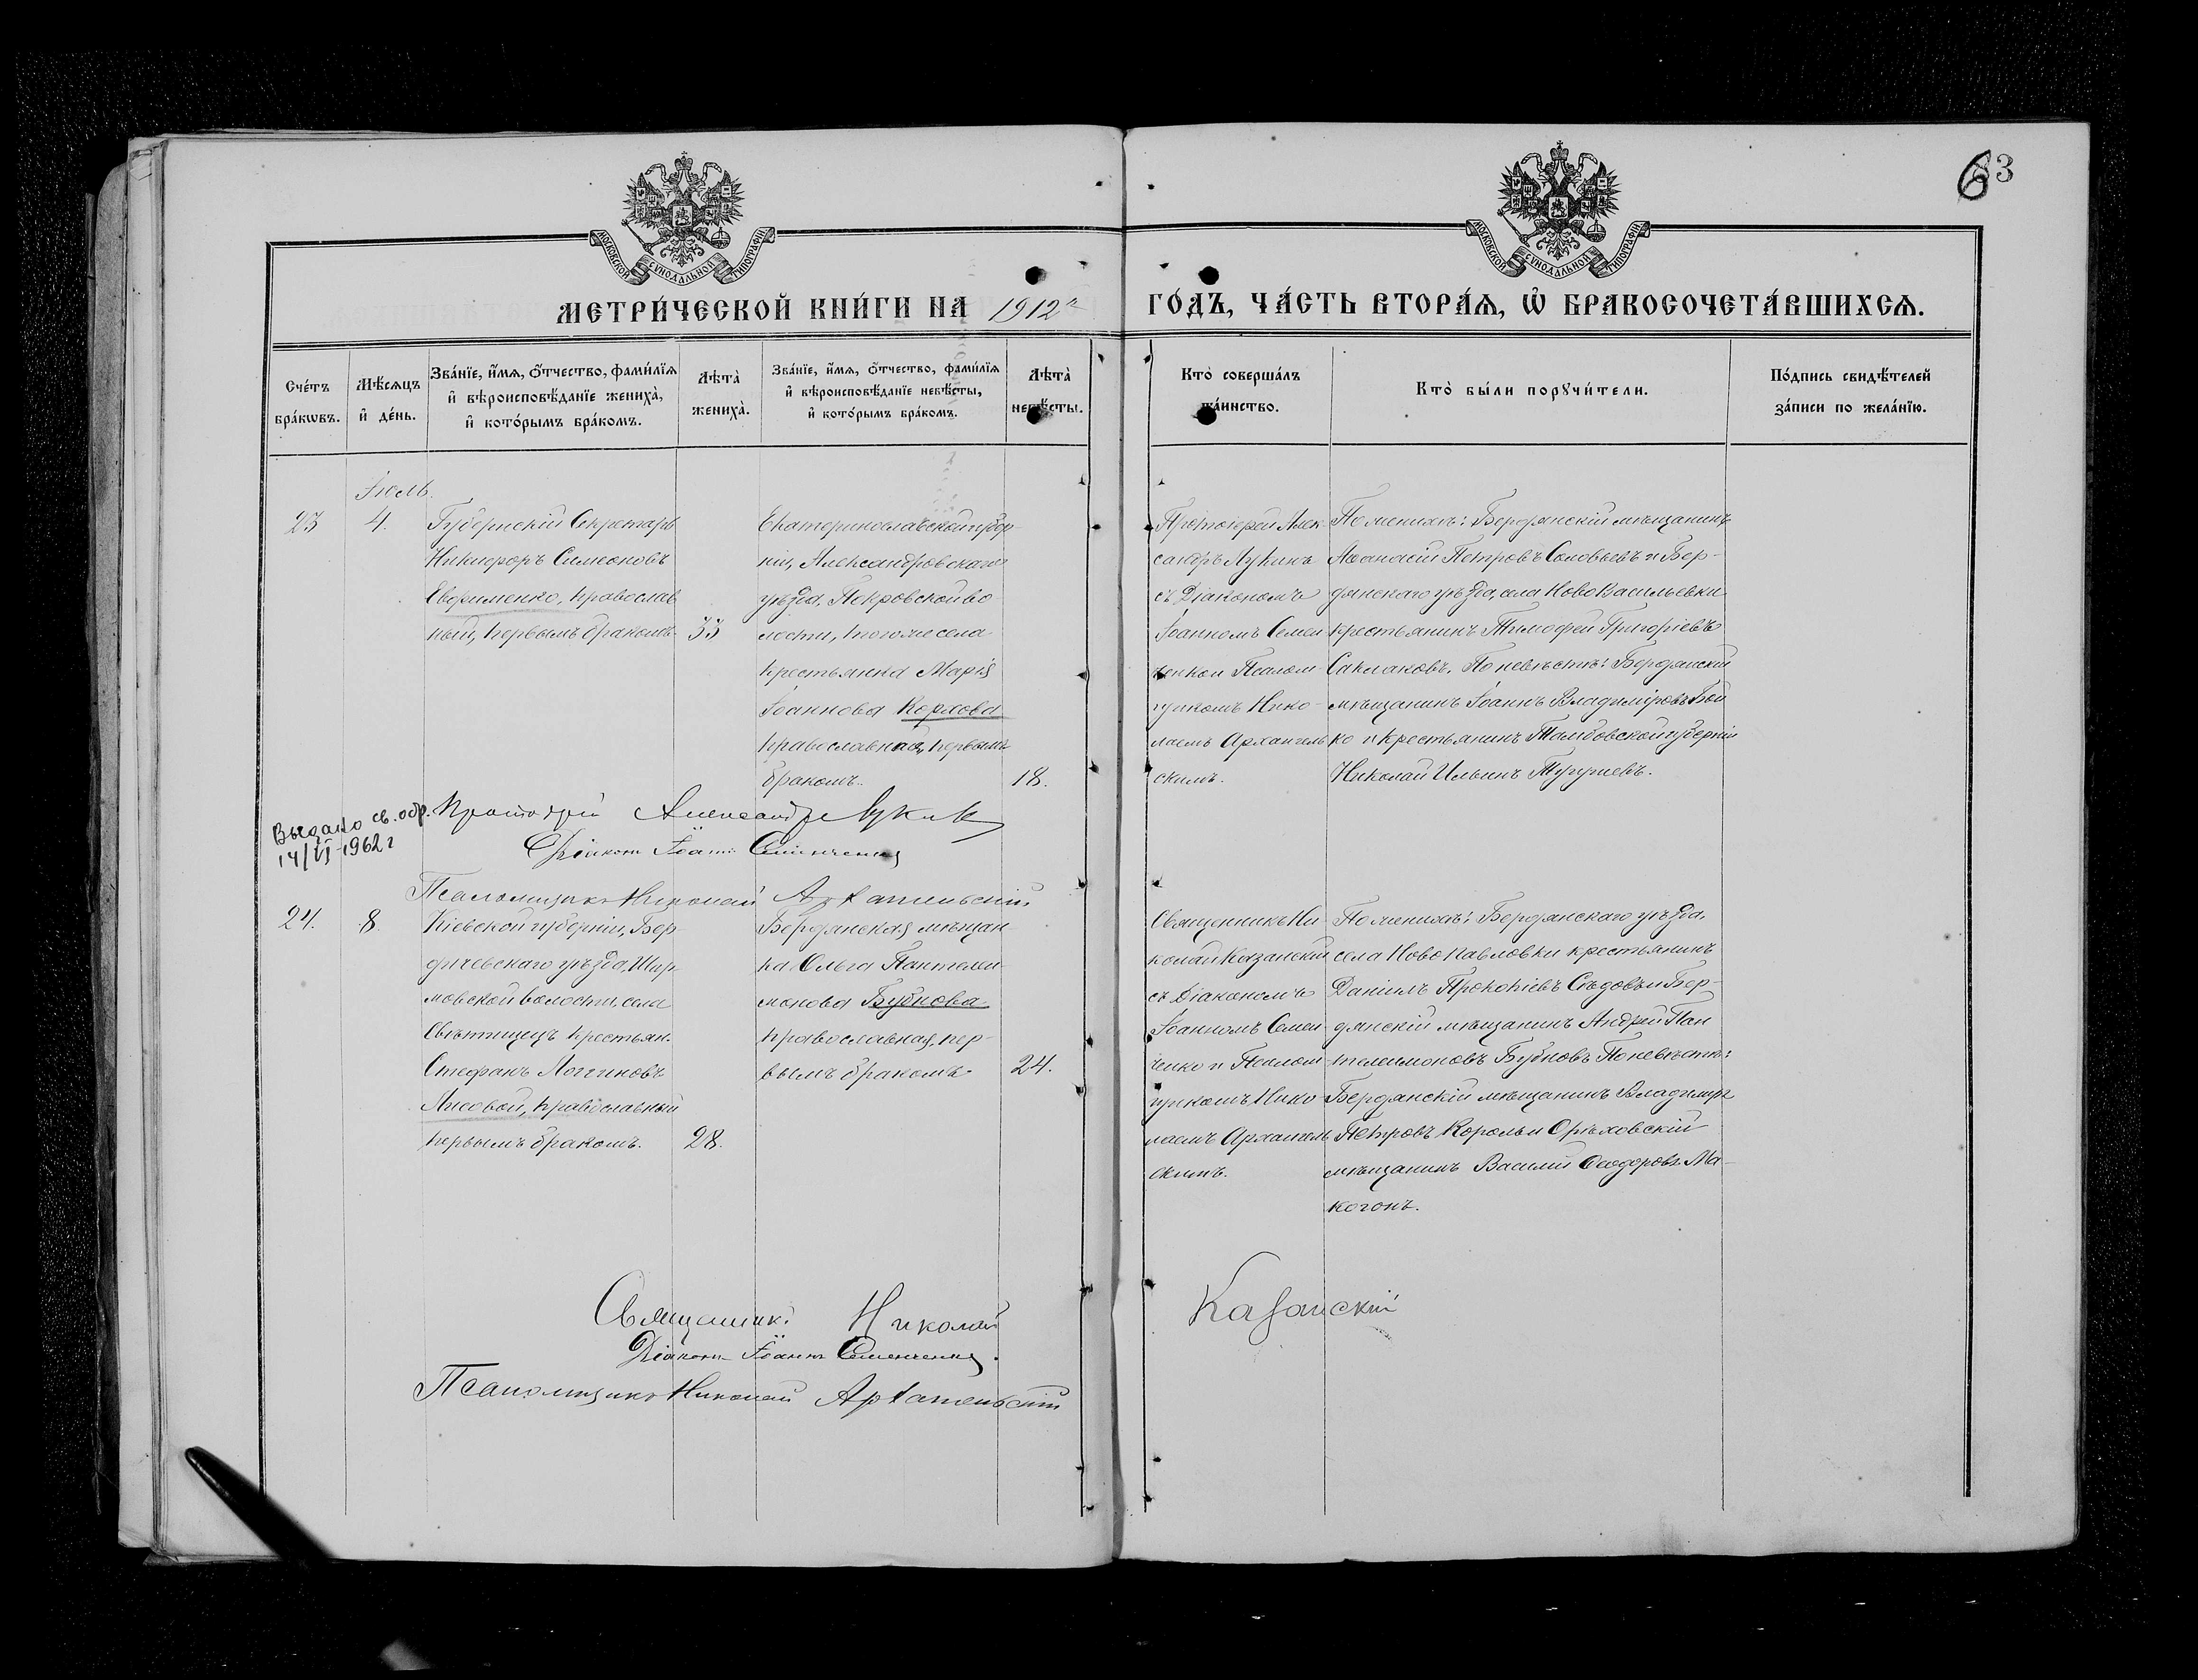 63
МОСКОВСКОЙ СУНОДАЛЬНОЙ ТИПОГРАФІИ
МОСКОВСКОЙ СУНОДАЛЬНОЙ ТИПОГРАФІИ
МЕТРИ́ЧЕСКОЙ КНИ́ГИ НА 1912й ГО́ДЪ, ЧА́СТЬ ВТОРА́Ѧ, Ѡ҆ БРАКОСОЧЕТА́ВШИХСѦ.
Сче́тъ бра́кѡвъ.
Мѣ́сѧцъ и҆ де́нь.
Зва́нїе, и҆́мѧ, ѻ҆́тчество, фами́лїѧ
и҆ вѣроисповѣ́данїе жениха̀,
и҆ кото́рымъ бра́комъ.
Лѣта̀ жениха̀.
Зва́нїе, и҆́мѧ, ѻ҆́тчество, фами́лїѧ
и҆ вѣроисповѣ́данїе невѣ́сты,
и҆ кото́рымъ бра́комъ.
Лѣта̀ невѣ́сты.
Кто̀ соверша́лъ
та́инство.
Кто̀ бы́ли порꙋчи́тели.
По́дпись свидѣ́телей
за́писи по жела́нїю.
Іюль.
23
4.
Губернскій Секретарь
Никифоръ Симеоновъ
Евфименко, православ
ный, первымъ бракомъ.
33
Екатеринославской губер-
ніи, Александровскаго
уѣзда, Покровской во
лости, того же села
крестьянка Марія
Іоаннова Козлова
православная, первымъ
бракомъ.
18.
Протоіерей Алек-
сандръ Лукинъ
съ Діакономъ
Іоанномъ Семен
ченко и Псалом-
щикомъ Нико-
лаемъ Архангель
скимъ.
По женихѣ: Бердянскій мѣщанинъ
Аѳанасій Петровъ Соловьевъ и Бер-
дянскаго уѣзда, села Ново Васильевки
крестьянинъ Тимофей Григоріевъ
Саклаковъ. По невѣстѣ: Бердянскій
мѣщанинъ Іоаннъ Владиміровъ Бой
ко и крестьянинъ Тамбовской губерніи
Николай Ильинъ
Протоіерей Александръ Лукинъ
Выдано св. обр.
14/VI-1962 г
Діаконъ Іоаннъ Семенченко
Псаломщикъ Николай Архангельскій
24.
8.
Кіевской губерніи, Бер-
дичевскаго уѣзда,
мовской волости, села
крестьян.
Стефанъ Логгиновъ
Лисовой, православный
первымъ бракомъ.
28.
Бердянская мѣщан-
ка Ольга Пантелеи-
монова Бубнова
православная, пер-
вымъ бракомъ.
24.
Священникъ Ни-
колай Казанскій
съ Діакономъ
Іоанномъ Семен-
ченко и Псалом
щикомъ Нико-
лаемъ Архангель
скимъ.
По женихѣ: Бердянскаго уѣзда,
села Ново Павловки крестьянинъ
Даніилъ Прокопіевъ Сѣдовъ и Бер-
дянскій мѣщанинъ Андрей Пан
телеимоновъ Бубновъ По невѣстѣ:
Бердянскій мѣщанинъ Владиміръ
Петровъ Король и Орѣховскій
мѣщанинъ Василій Ѳеодоровъ Ма-
когонъ.
Священникъ Николай Казанскій
Діаконъ Іоаннъ Семенченко.
Псаломщикъ Николай Архангельскій